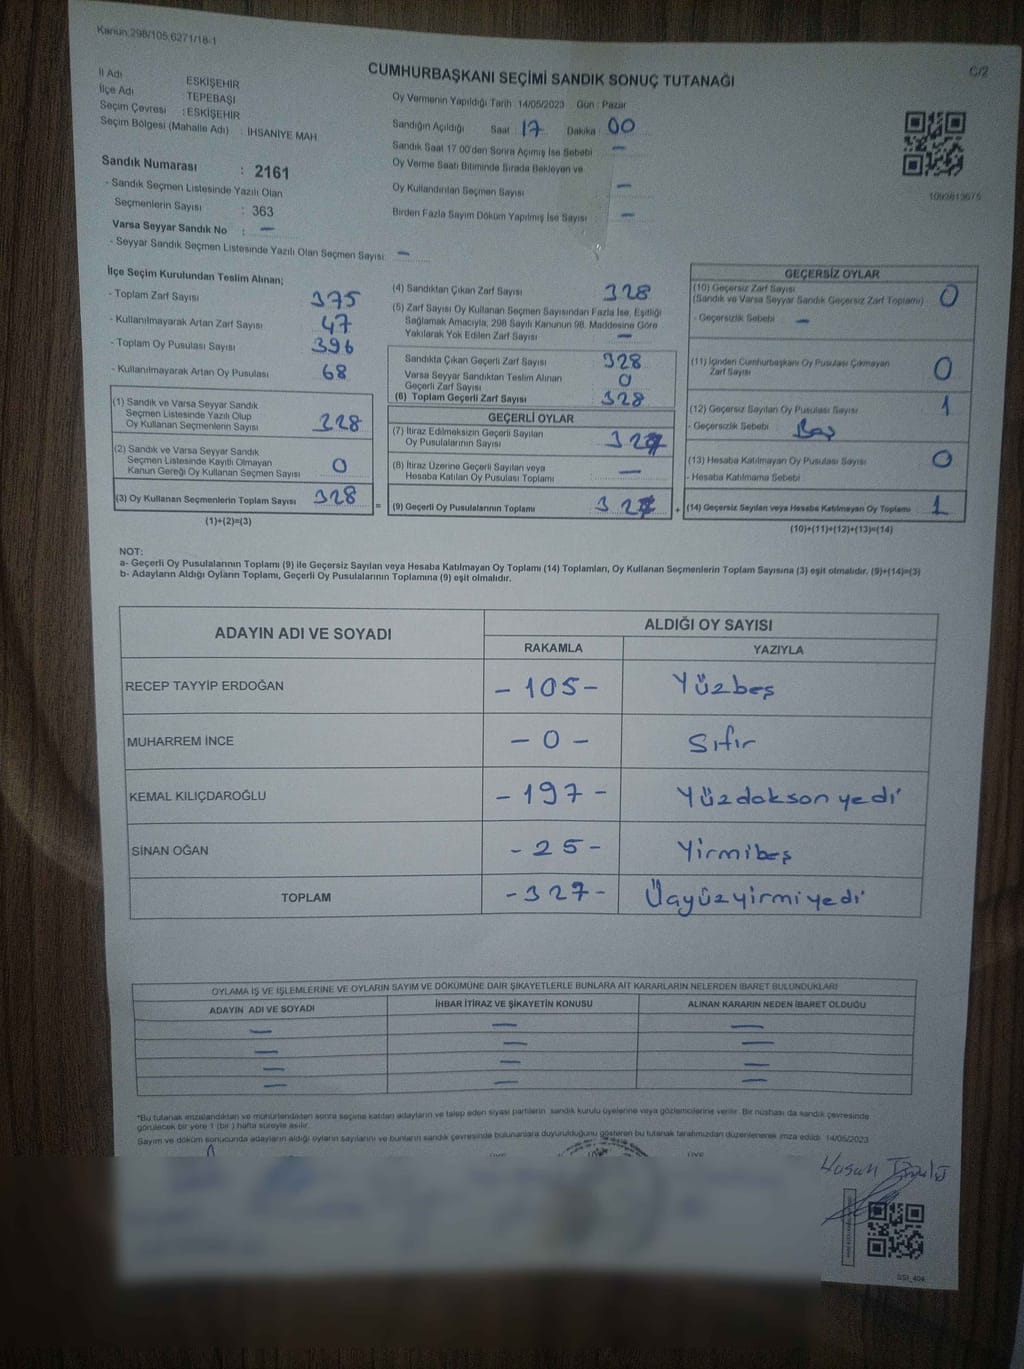 Kanun:298/105,6271/18-1
C/2
CUMHURBAŞKANI SEÇİMİ SANDIK SONUÇ TUTANAĞI
İl Adı ESKİŞEHİR
İlçe Adı TEPEBAŞI
Seçim Çevresi : ESKİŞEHİR
Seçim Bölgesi (Mahalle Adı) : İHSANİYE MAH.
Sandık Numarası : 2161
- Sandık Seçmen Listesinde Yazılı Olan
Seçmenlerin Sayısı : 363
Varsa Seyyar Sandık No : —
- Seyyar Sandık Seçmen Listesinde Yazılı Olan Seçmen Sayısı —
Oy Vermenin Yapıldığı Tarih : 14/05/2023 Gün : Pazar
Sandığın Açıldığı Saat : 17 Dakika : 00
Sandık Saat 17:00'den Sonra Açımış İse Sebebi : —
Oy Verme Saati Bitiminde Sırada Bekleyen ve
Oy Kullandırılan Seçmen Sayısı —
Birden Fazla Sayım Döküm Yapılmış İse Sayısı —
İlçe Seçim Kurulundan Teslim Alınan;
- Toplam Zarf Sayısı 375
- Kullanılmayarak Artan Zarf Sayısı 47
- Toplam Oy Pusulası Sayısı 396
- Kullanılmayarak Artan Oy Pusulası 68
(1) Sandık ve Varsa Seyyar Sandık
Seçmen Listesinde Yazılı Olup
Oy Kullanan Seçmenlerin Sayısı 328
(2) Sandık ve Varsa Seyyar Sandık
Seçmen Listesinde Kayıtlı Olmayan
Kanun Gereği Oy Kullanan Seçmen Sayısı 0
(3) Oy Kullanan Seçmenlerin Toplam Sayısı 328 =
(1)+(2)=(3)
(4) Sandıktan Çıkan Zarf Sayısı 328
(5) Zarf Sayısı Oy Kullanan Seçmen Sayısından Fazla İse, Eşitliği
Sağlamak Amacıyla, 298 Sayılı Kanunun 98. Maddesine Göre
Yakılarak Yok Edilen Zarf Sayısı —
Sandıkta Çıkan Geçerli Zarf Sayısı 328
Varsa Seyyar Sandıktan Teslim Alınan
Geçerli Zarf Sayısı 0
(6) Toplam Geçerli Zarf Sayısı 328
GEÇERLİ OYLAR
(7) İtiraz Edilmeksizin Geçerli Sayılan
Oy Pusulalarının Sayısı 327
(8) İtiraz Üzerine Geçerli Sayılan veya
Hesaba Katılan Oy Pusulası Toplamı —
(9) Geçerli Oy Pusulalarının Toplamı 327 +
GEÇERSİZ OYLAR
(10) Geçersiz Zarf Sayısı
(Sandık ve Varsa Seyyar Sandık Geçersiz Zarf Toplamı) 0
- Geçersizlik Sebebi : —
(11) İçinden Cumhurbaşkanı Oy Pusulası Çıkmayan
Zarf Sayısı 0
(12) Geçersiz Sayılan Oy Pusulası Sayısı 1
- Geçersizlik Sebebi : Boş
(13) Hesaba Katılmayan Oy Pusulası Sayısı 0
- Hesaba Katılmama Sebebi :
(14) Geçersiz Sayılan veya Hesaba Katılmayan Oy Toplamı 1
(10)+(11)+(12)+(13)=(14)
NOT:
a- Geçerli Oy Pusulalarının Toplamı (9) ile Geçersiz Sayılan veya Hesaba Katılmayan Oy Toplamı (14) Toplamları, Oy Kullanan Seçmenlerin Toplam Sayısına (3) eşit olmalıdır. (9)+(14)=(3)
b- Adayların Aldığı Oyların Toplamı, Geçerli Oy Pusulalarının Toplamına (9) eşit olmalıdır.
ADAYIN ADI VE SOYADI ALDIĞI OY SAYISI
RAKAMLA YAZIYLA
RECEP TAYYİP ERDOĞAN - 105 - Yüzbeş
MUHARREM İNCE - 0 - Sıfır
KEMAL KILIÇDAROĞLU - 197 - Yüzdoksonyedi
SİNAN OĞAN - 25 - Yirmibeş
TOPLAM - 327 - Üçyüzyirmiyedi
OYLAMA İŞ VE İŞLEMLERİNE VE OYLARIN SAYIM VE DÖKÜMÜNE DAİR ŞİKAYETLERLE BUNLARA AİT KARARLARIN NELERDEN İBARET BULUNDUKLARI
ADAYIN ADI VE SOYADI İHBAR İTİRAZ VE ŞİKAYETİN KONUSU ALINAN KARARIN NEDEN İBARET OLDUĞU
— — —
— — —
— — —
— — —
*Bu tutanak imzalandıktan ve mühürlendikten sonra seçime katılan adayların ve talep eden siyasi partilerin sandık kurulu üyelerine veya gözlemcilerine verilir. Bir nüshası da sandık çevresinde
görülecek bir yere 1 (bir) hafta süreyle asılır.
Sayım ve döküm sonucunda adayların aldığı oyların sayılarını ve bunların sandık çevresinde bulunanlara duyurulduğunu gösteren bu tutanak tarafımızdan düzenlenerek imza edildi. 14/05/2023
Hasan
SSI_404